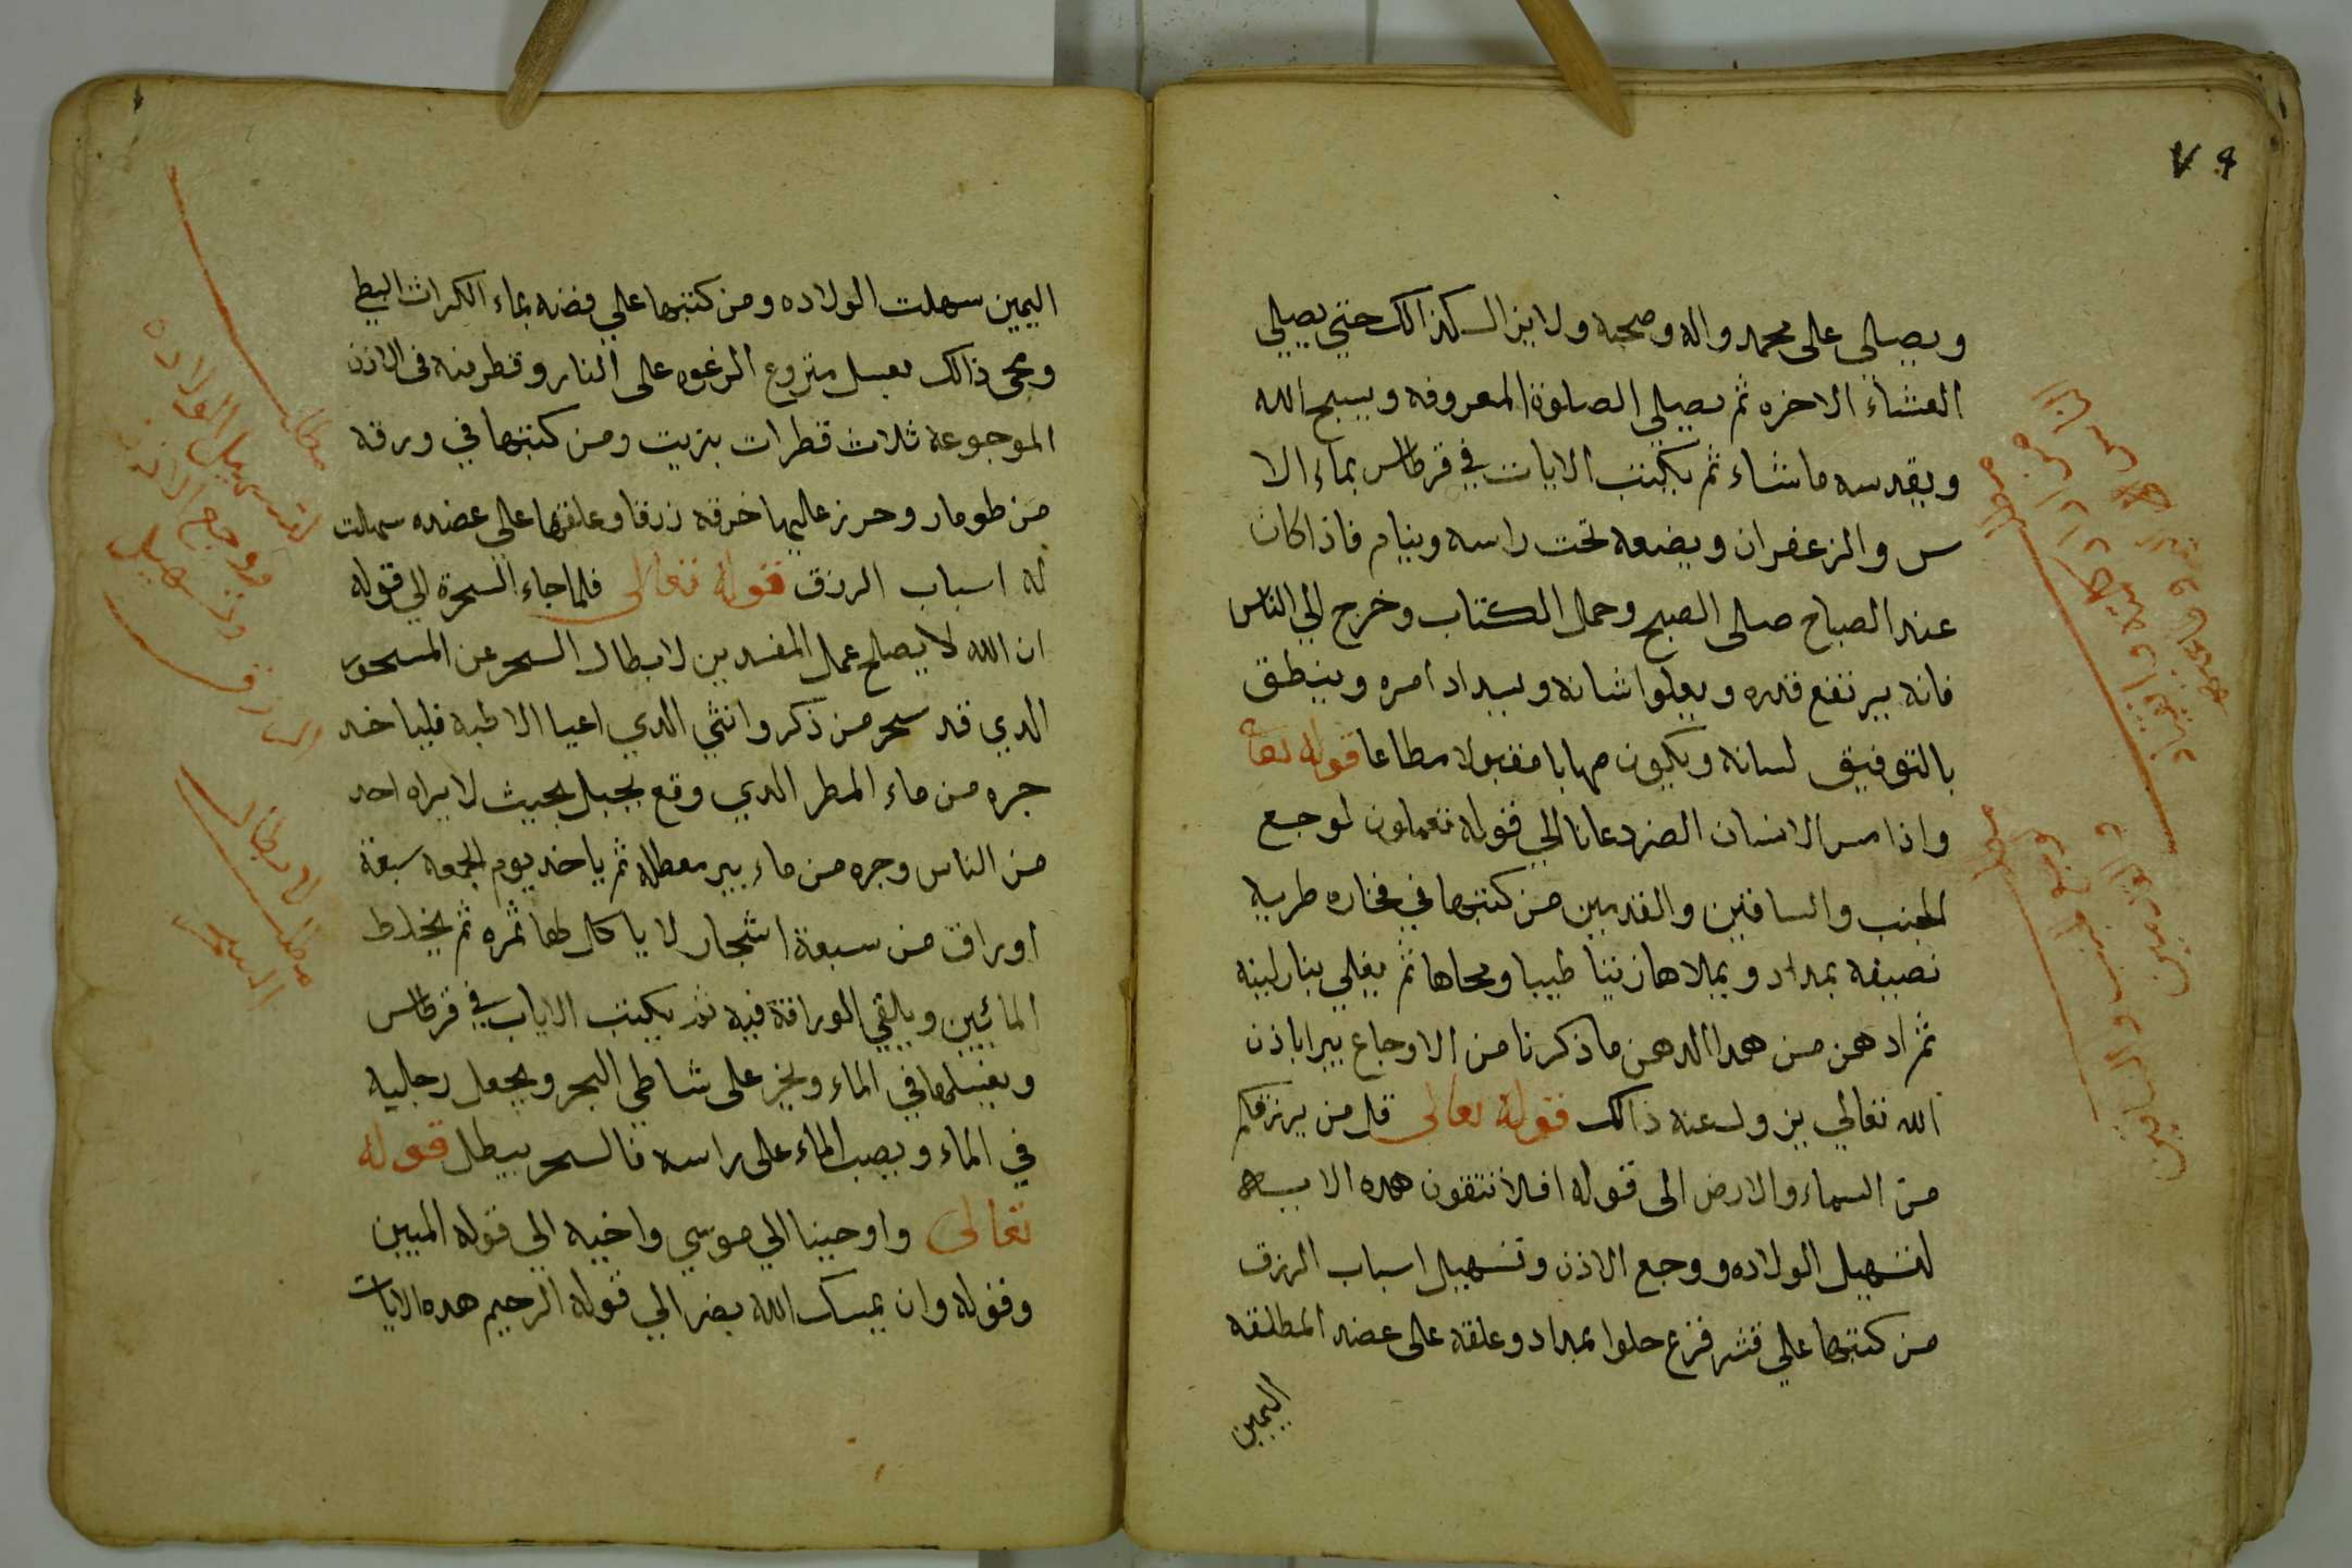 ٧٩
ويصلي على محمد واله وصحبه ولا يزال كذالك حتي يصلي
العشاء الاخره ثم يصلي الصلوة المعروفه ويسبح الله
ويقدسه ماشاء ثم يكتب الايات في قرطاس بماء الا
س والزعفران ويضعه تحت راسه وينام فاذا كان
عند الصباح صلى الصبح وحمل الكتاب وخرج الي الناس
فانه يرتفع قدره ويعلوا شانه ويسداد امره وينطق
بالتوفيق لسانه ويكون مهابا مقبولا مطاعا قوله تعا
واذا مس الانسان الضر دعانا الي قوله تعملون لوجع
الجنب والساقين والقدمين من كتبها في فخاره طريه
نصيفه بمداد ويملاها زيتا طيبا ومحاها ثم يغلي بنار لينه
ثم ادهن من هدا الدهن ما ذكرنا من الاوجاع يبرا باذن
الله تعالي يزول عنه ذالك قوله تعالى قل من يرزقكم
من السماء والارض الى قوله افلا تتقون هده الايه
لتسهيل الولاده ووجع الاذن وتسهيل اسباب الرزق
من كتبها علي قشر قزع حلوا بمداد وعلقه على عضد المطلقه
اليمين
اليمين سهلت الولاده ومن كتبها علي فضه بماء الكراث البطي
ومحى ذالك بعسل منزوع الرغوه على النار وقطر منه فى الاذن
الموجوعة ثلاث قطرات بزيت ومن كتبها في ورقه
من طومار وحرز عاليها خرقه زرقا وعلقها علي عضده سهلت
له اسباب الرزق قوله تعالى فلما جاء السحرة الي قوله
ان الله لا يصلح عمل المفسدين لابطال السحر عن المسحور
الدي قد سحر من ذكر وانثي الدي اعيا الاطبه فلياخد
جره من ماء المطر الدي وقع بجبل بحيث لا يراه احد
من الناس وجره من ماء بير معطله ثم ياخد يوم الجمعه سبعة
اوراق من سبعة اشجار لا ياكل لها ثمره ثم يخلط
المائين ويلقي الوراقة فيه ثم يكتب الاياب في قرطاس
ويغسلها في الماء ويخر على شاطي البحر ويجعل رجليه
في الماء ويصب الماء على راسه فالسحر يبطل قوله
تعالى واوحينا الي موسي واخيه الي قوله المبين
وقوله وان يمسك الله بضر الي قوله الرحيم هده الايات
مطلب
لتسهيل الولاده
ووجع الاذن
وتسهيل
الرزق
مطلب
لابطال
السحر